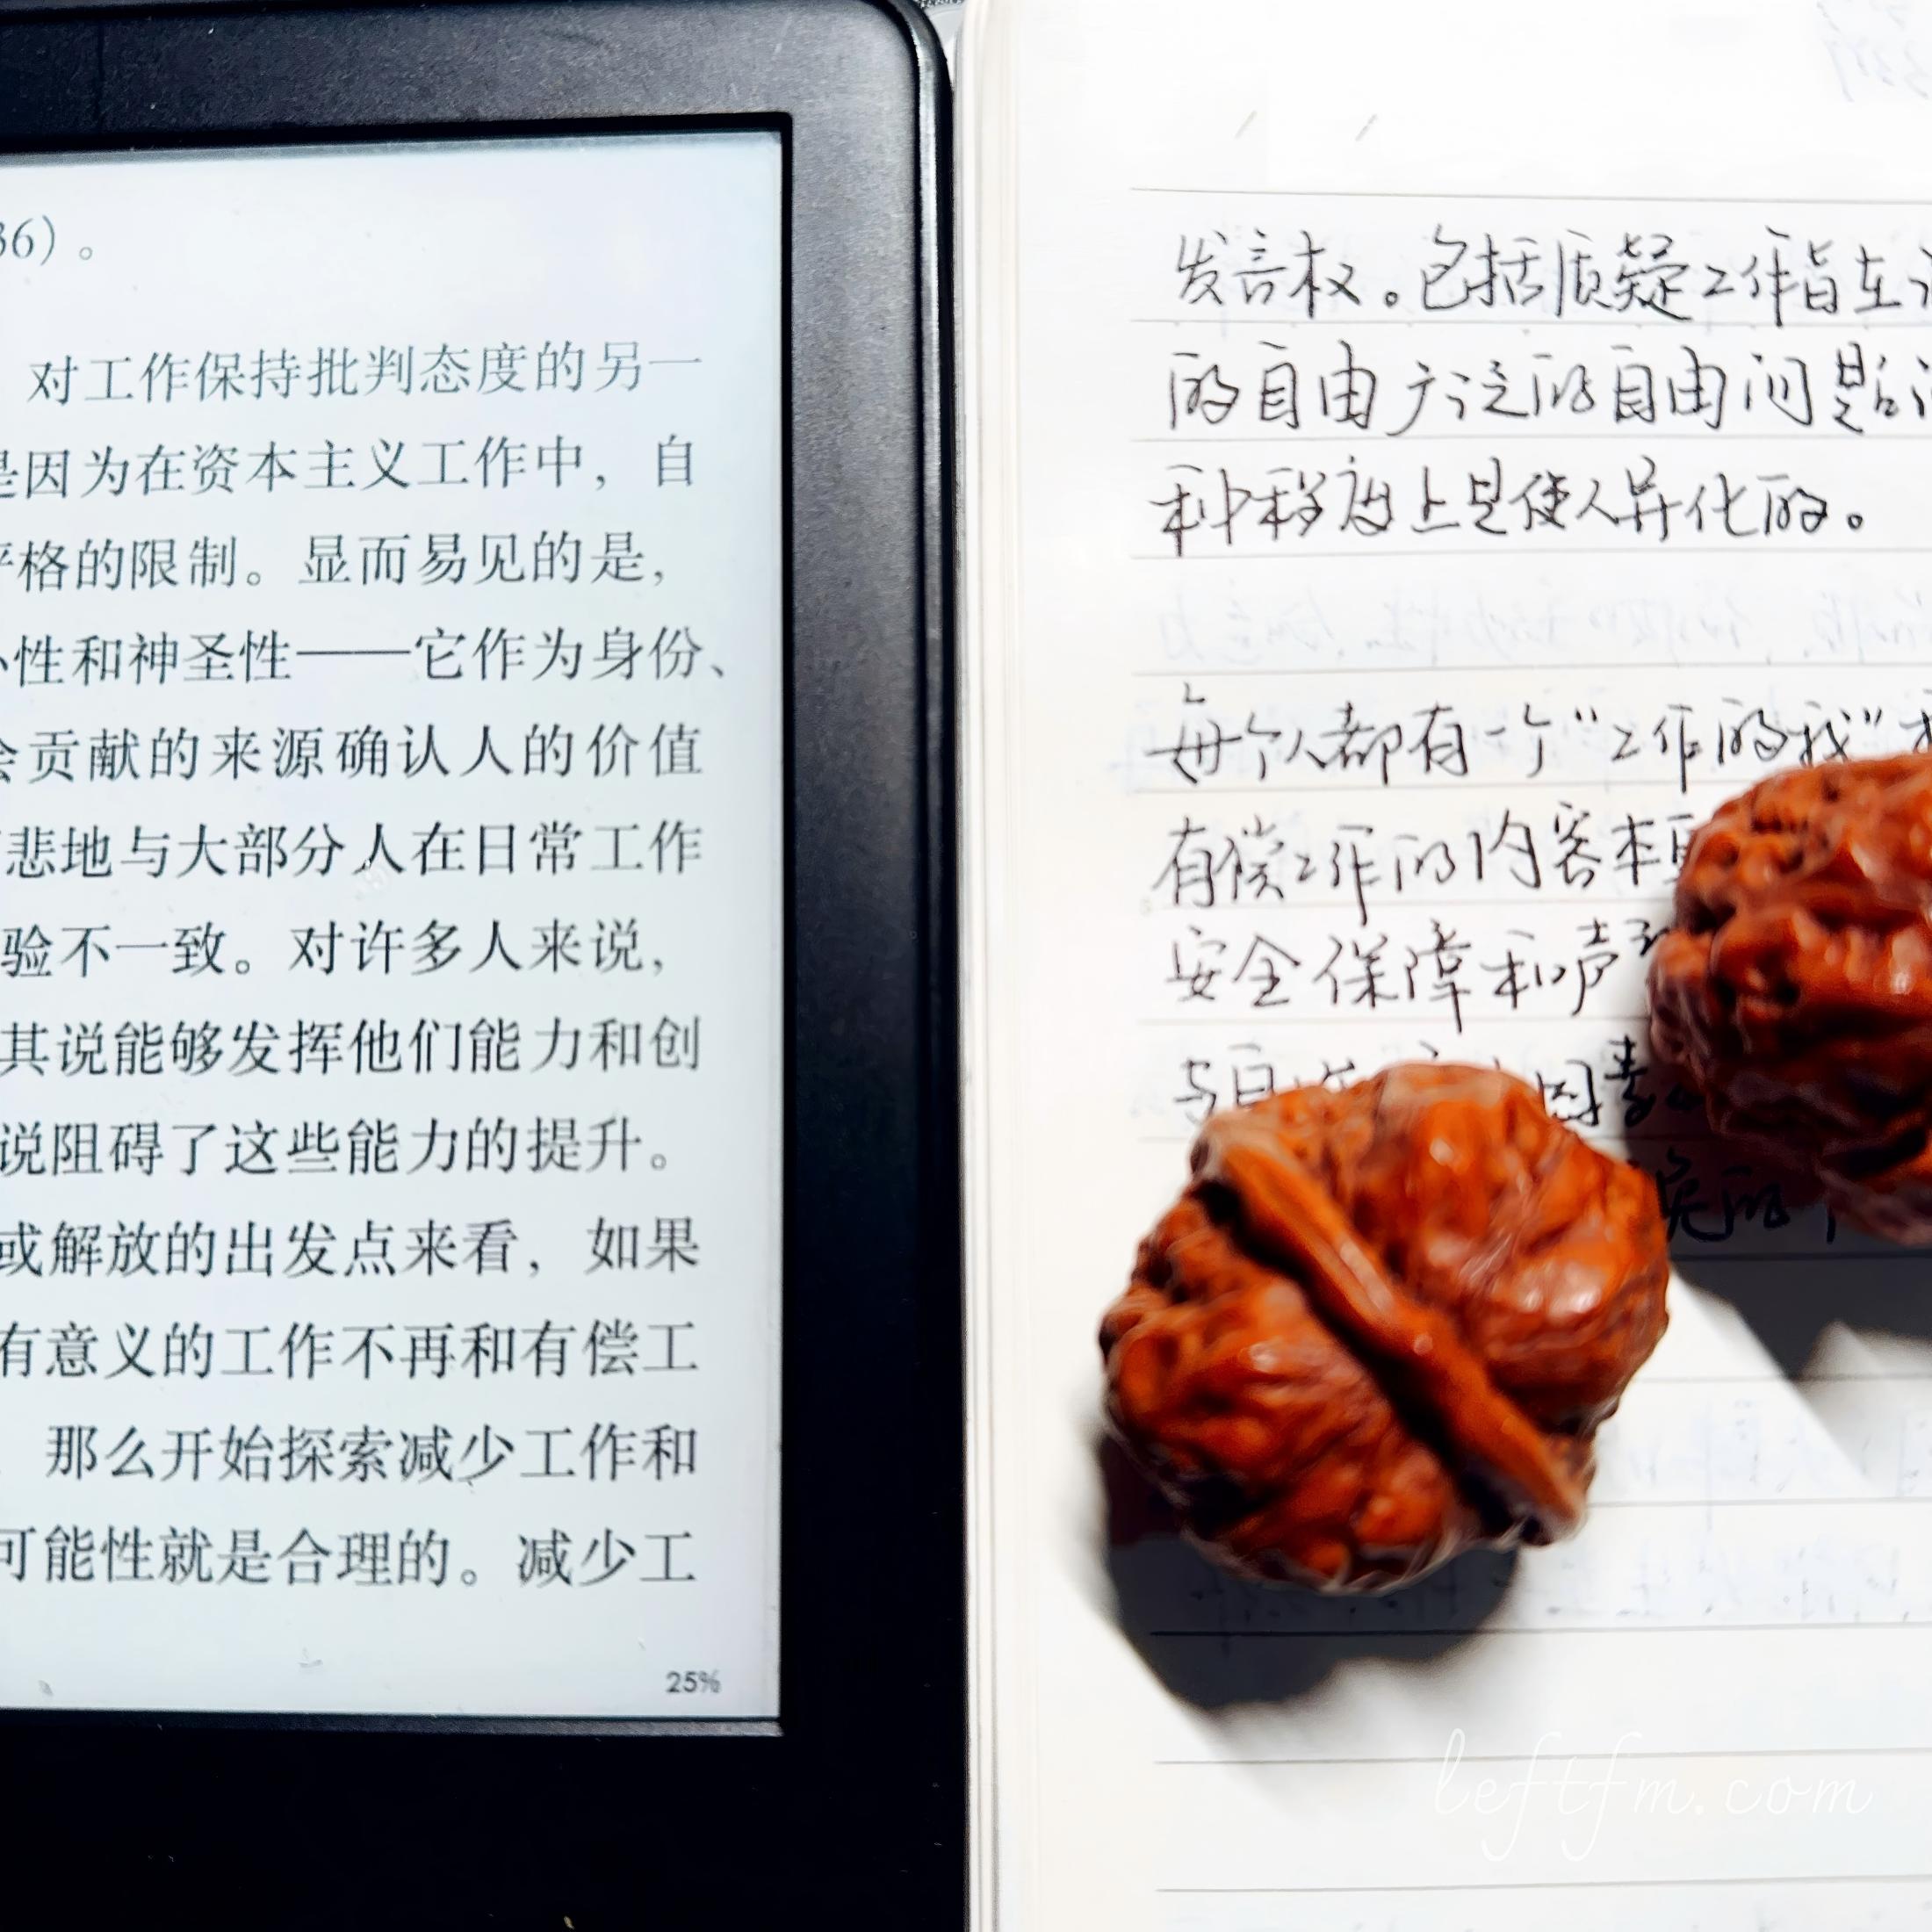 36）。
对工作保持批判态度的另一
是因为在资本主义工作中，自
严格的限制。显而易见的是，
心性和神圣性——它作为身份、
会贡献的来源确认人的价值
悲地与大部分人在日常工作
验不一致。对许多人来说，
其说能够发挥他们能力和创
说阻碍了这些能力的提升。
或解放的出发点来看，如果
有意义的工作不再和有偿工
那么开始探索减少工作和
可能性就是合理的。减少工
25%
发言权。包括质疑工作旨在
的自由广泛的自由问题
种程度上是使人异化的。
每个人都有一个“工作的我”
有偿工作的内容本
安全保障和声
与自 因素
的
leftfm.com